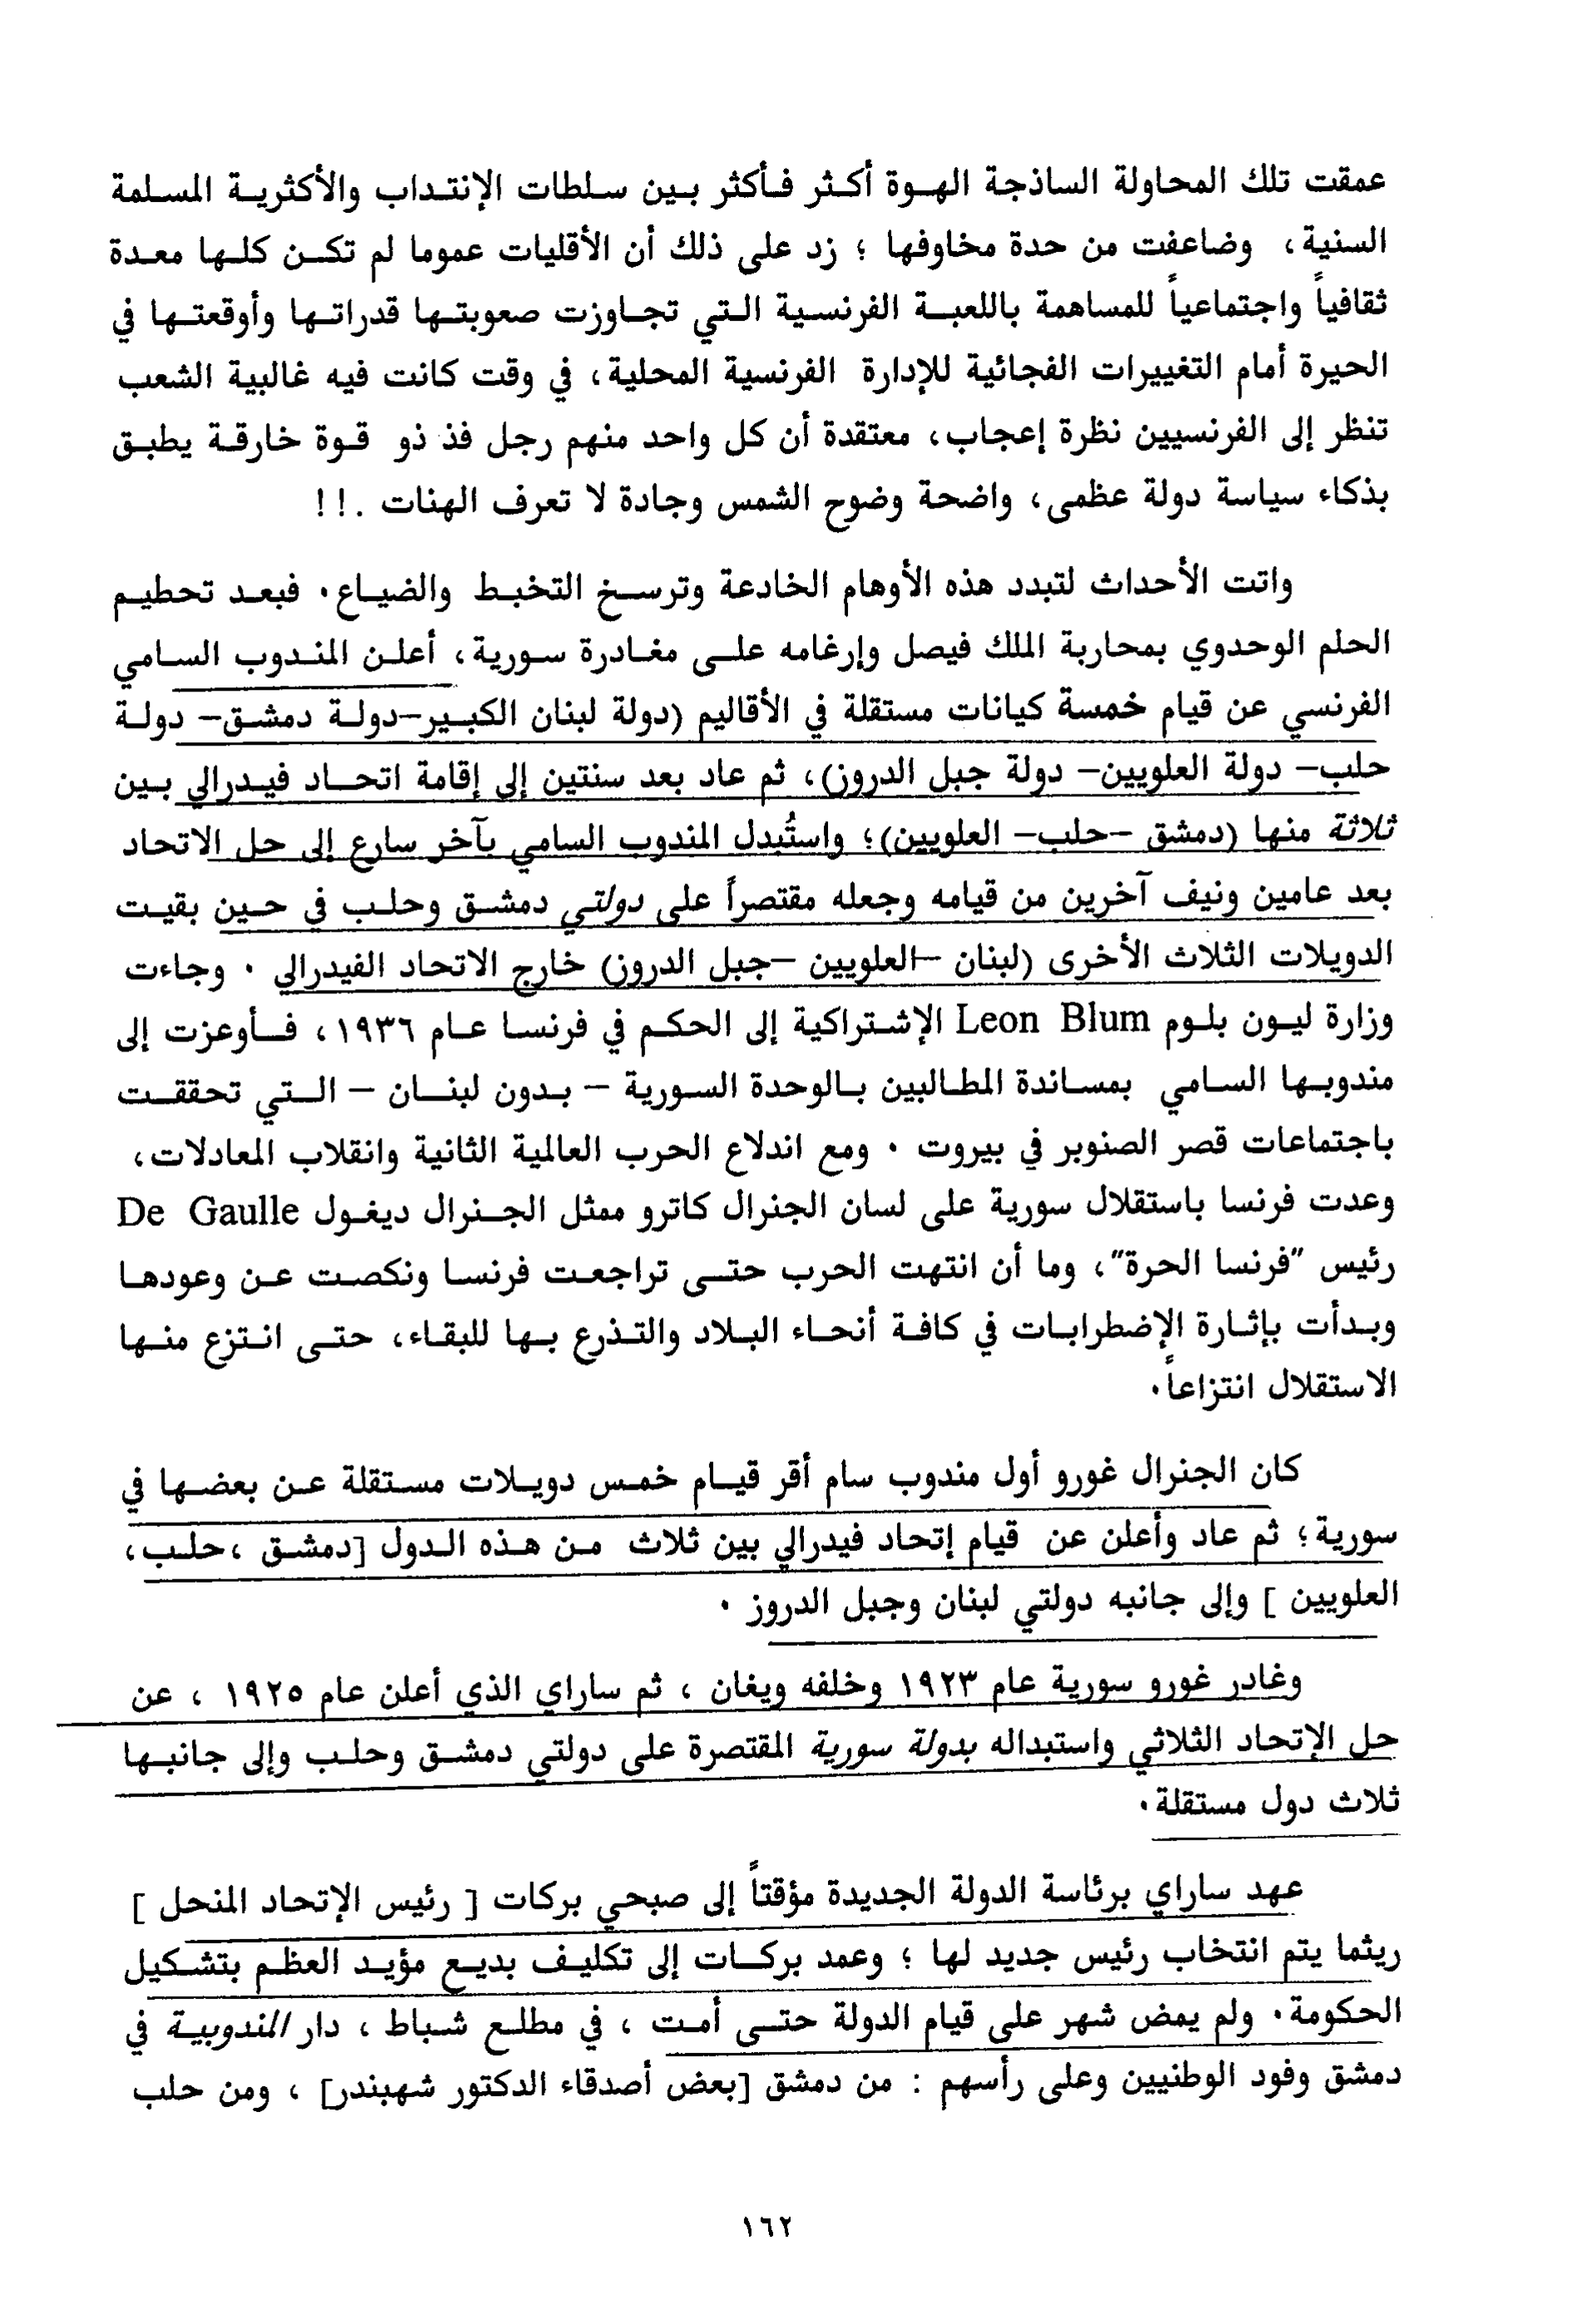 عمقت تلك المحاولة الساذجة الهوة أكثر فأكثر بين سلطات الإنتداب والأكثرية المسلمة
السنية، وضاعفت من حدة مخاوفها ؛ زد على ذلك أن الأقليات عموما لم تكن كلها معدة
ثقافياً واجتماعياً للمساهمة باللعبة الفرنسية التي تجاوزت صعوبتها قدراتها وأوقعتها في
الحيرة أمام التغييرات الفجائية للإدارة الفرنسية المحلية، في وقت كانت فيه غالبية الشعب
تنظر إلى الفرنسيين نظرة إعجاب، معتقدة أن كل واحد منهم رجل فذ ذو قوة خارقة يطبق
بذكاء سياسة دولة عظمى، واضحة وضوح الشمس وجادة لا تعرف الهنات .!!
واتت الأحداث لتبدد هذه الأوهام الخادعة وترسخ التخبط والضياع. فبعد تحطيم
الحلم الوحدوي بمحاربة الملك فيصل وإرغامه على مغادرة سورية، أعلن المندوب السامي
الفرنسي عن قيام خمسة كيانات مستقلة في الأقاليم (دولة لبنان الكبير-دولة دمشق- دولة
حلب- دولة العلويين- دولة جبل الدروز)، ثم عاد بعد سنتين إلى إقامة اتحاد فيدرالي بين
ثلاثة منها (دمشق -حلب- العلويين)؛ واستُبدل المندوب السامي بآخر سارع إلى حل الاتحاد
بعد عامين ونيف آخرين من قيامه وجعله مقتصراً على دولتي دمشق وحلب في حين بقيت
الدويلات الثلاث الأخرى (لبنان -العلويين -جبل الدروز) خارج الاتحاد الفيدرالي . وجاءت
وزارة ليون بلوم Leon Blum الإشتراكية إلى الحكم في فرنسا عام ١٩٣٦، فأوعزت إلى
مندوبها السامي بمساندة المطالبين بالوحدة السورية - بدون لبنان - التي تحققت
باجتماعات قصر الصنوبر في بيروت . ومع اندلاع الحرب العالمية الثانية وانقلاب المعادلات،
وعدت فرنسا باستقلال سورية على لسان الجنرال كاترو ممثل الجنرال ديغول De Gaulle
رئيس "فرنسا الحرة"، وما أن انتهت الحرب حتى تراجعت فرنسا ونكصت عن وعودها
وبدأت بإثارة الإضطرابات في كافة أنحاء البلاد والتذرع بها للبقاء، حتى انتزع منها
الاستقلال انتزاعاً.
كان الجنرال غورو أول مندوب سام أقر قيام خمس دويلات مستقلة عن بعضها في
سورية؛ ثم عاد وأعلن عن قيام إتحاد فيدرالي بين ثلاث من هذه الدول [دمشق ،حلب،
العلويين ] وإلى جانبه دولتي لبنان وجبل الدروز .
وغادر غورو سورية عام ١٩٢٣ وخلفه ويغان ، ثم ساراي الذي أعلن عام ١٩٢٥ ، عن
حل الإتحاد الثلاثي واستبداله بدولة سورية المقتصرة على دولتي دمشق وحلب وإلى جانبها
ثلاث دول مستقلة.
عهد ساراي برئاسة الدولة الجديدة مؤقتاً إلى صبحي بركات [ رئيس الإتحاد المنحل ]
ريثما يتم انتخاب رئيس جديد لها ؛ وعمد بركات إلى تكليف بديع مؤيد العظم بتشكيل
الحكومة. ولم يمض شهر على قيام الدولة حتى أمت ، في مطلع شباط ، دار المندوبية في
دمشق وفود الوطنيين وعلى رأسهم : من دمشق [بعض أصدقاء الدكتور شهبندر] ، ومن حلب
١٦٢